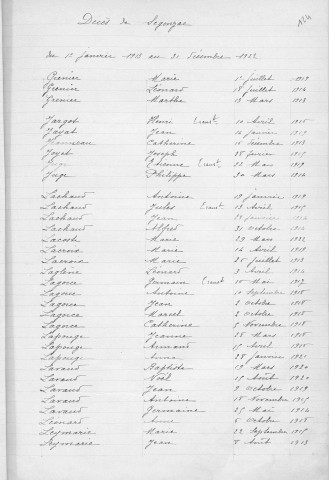 Décès de Segonzac
124
du 1er Janvier 1913 au 31 Décembre 1922
Grenier Marie 1er Juillet 1919
Grenier Léonard 18 Juillet 1914
Grenier Marthe 13 Mars 1913
Jargot Henri 10 Avril 1915
Jayat Jean 14 Janvier
Catherine 15 Décembre 1913
Joyet Joseph 25 Janvier
Juge Etienne Mai 1919
Juge Philippe 30 Mars 1914
Lachaud Antoine 19 Janvier 1919
Lachaud Jules Avril
Lachaud Jean Janvier
Lachaud Alfred 31 Octobre 1914
Lacoste Marie 29 Mars 1922
Lacroix Marie 14 Avril 1918
Lacroix Marie 25 Juillet 1913
Léonard 3 Avril 1914
Lagorce Germain 10 Mai 1917
Lagorce Antoine 10 Septembre 1915
Lagorce Jean 2 Octobre 1918
Lagorce Marcel 2 Octobre 1918
Lagorce Catherine 9 Novembre 1918
Lapouge Jeanne 28 Mars 1915
Lapouge Armand 15 Avril 1915
Lapouge Anna 28 Janvier
Lavaud Baptiste 19 Mars 1920
Lavaud Noël 15 Août 1920
Lavaud Jean 2 Octobre 1919
Lavaud Antoine 18 Novembre 1915
Lavaud Germaine 25 Mai 1914
Léonard Anne 5 Octobre 1918
Leymarie Maria 22 Septembre 1915
Leymarie Jean 7 Août 1913